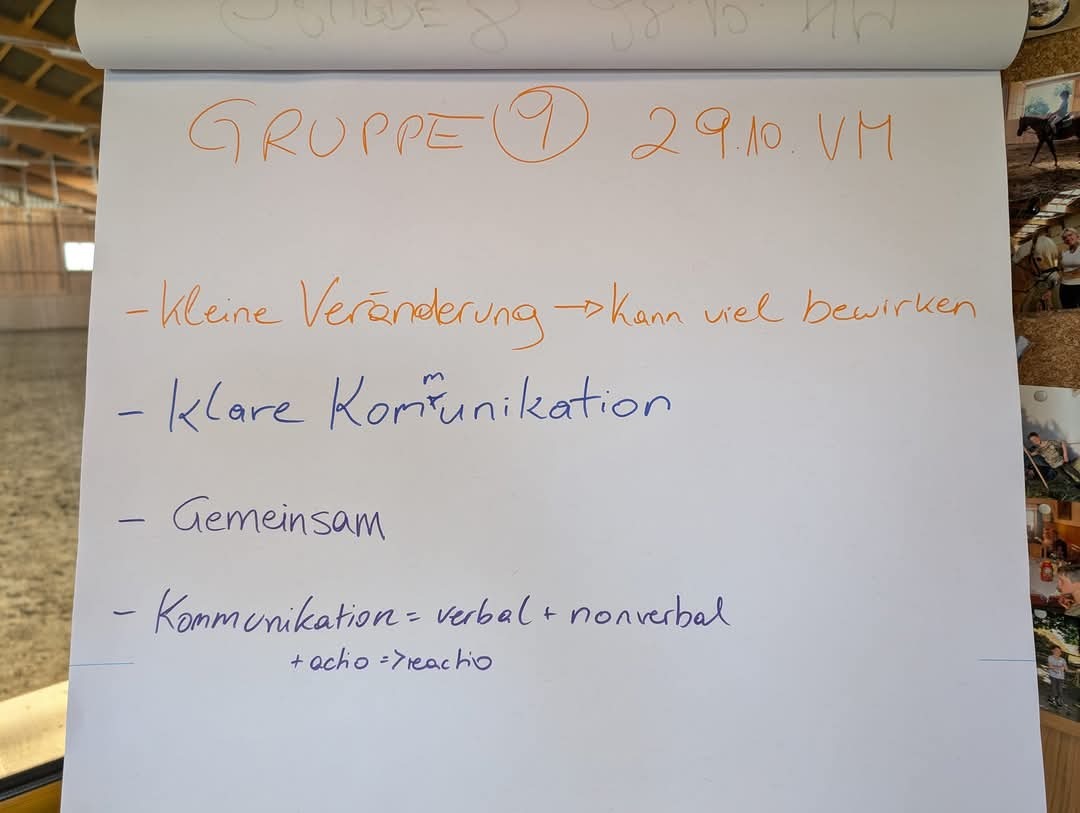 GRUPPE 9 29.10. VM
- Kleine Veränderung → Kann viel bewirken
- Klare Kommunikation
- Gemeinsam
- Kommunikation = verbal + nonverbal
+ actio => reactio